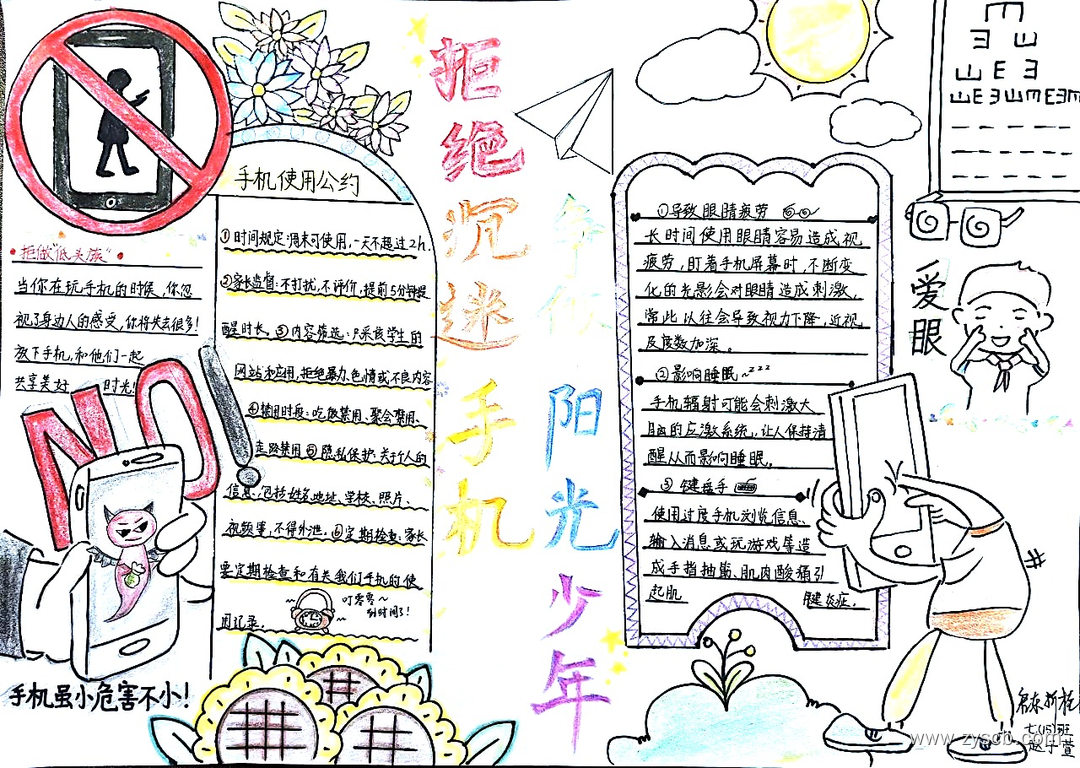 拒绝沉迷手机
争做阳光少年
手机使用公约
①时间规定:周末可使用,一天不超过2h.
②家长监督:不打扰,不评价,提前5分钟提
醒时长。③内容筛选:只采该学生的
网站和应用,拒绝暴力、色情或不良内容
④禁用时段:吃饭禁用、聚会禁用、
走路禁用⑤隐私保护:关于个人的
信息,包括姓名、地址、学校、照片、
视频等,不得外泄.⑥定期检查:家长
要定期检查和有关我们手机的使
用记录.
叮零零~
到时间了!
拒做“低头族”
当你在玩手机的时候,你忽
视了身边人的感受,你将失去很多!
放下手机,和他们一起
共享美好 时光!
NO!
手机虽小危害不小!
①导致眼睛疲劳
长时间使用眼睛容易造成视
疲劳,盯着手机屏幕时,不断变
化的光影会对眼睛造成刺激,
常此以往会导致视力下降,近视
及度数加深。
②影响睡眠~zzz
手机辐射可能会刺激大
脑的应激系统,让人保持清
醒从而影响睡眠,
③键盘手
使用过度手机浏览信息、
输入消息或玩游戏等造
成手指抽筋、肌肉酸痛引
起肌 腱炎症.
爱眼
七(15)班
www.zyscb.com